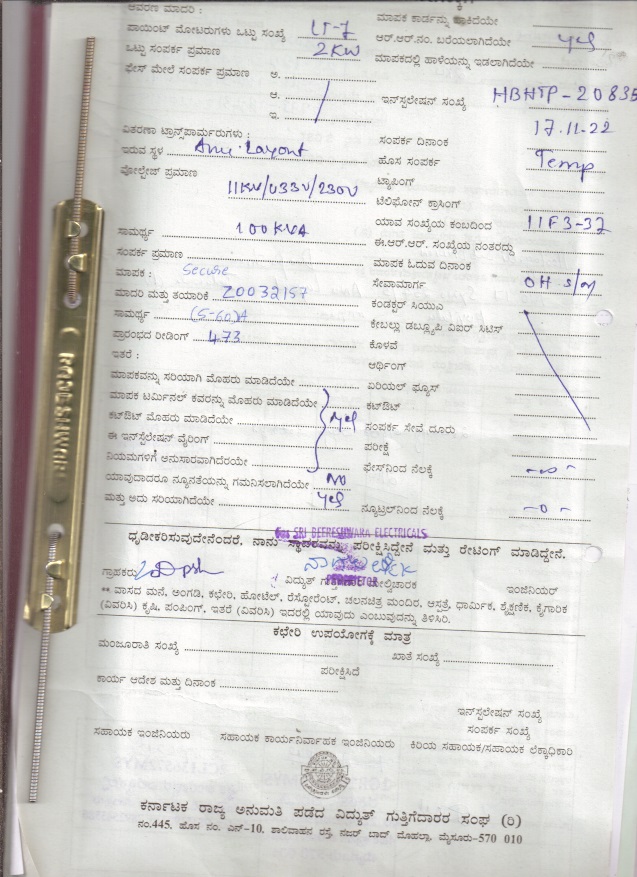 ಆವರಣ ಮಾದರಿ :
ಪಾಯಿಂಟ್ ಮೋಟರುಗಳು ಒಟ್ಟು ಸಂಖ್ಯೆ LT-7
ಒಟ್ಟು ಸಂಪರ್ಕ ಪ್ರಮಾಣ 2KW
ಫೇಸ್ ಮೇಲೆ ಸಂಪರ್ಕ ಪ್ರಮಾಣ ಅ.
ಆ.
ಇ.
ವಿತರಣಾ ಟ್ರಾನ್ಸ್‌ಪಾರ್ಮರುಗಳು :
ಇರುವ ಸ್ಥಳ Layout
ವೋಲ್ಟೇಜ್ ಪ್ರಮಾಣ
11KV/033V/230V
ಸಾಮರ್ಥ್ಯ 100KVA
ಸಂಪರ್ಕ ಪ್ರಮಾಣ
ಮಾಪಕ : Secure
ಮಾದರಿ ಮತ್ತು ತಯಾರಿಕೆ Z0032157
ಸಾಮರ್ಥ್ಯ (5-60)A
ಪ್ರಾರಂಭದ ರೀಡಿಂಗ್ 4.73
ಇತರೆ :
ಮಾಪಕವನ್ನು ಸರಿಯಾಗಿ ಮೊಹರು ಮಾಡಿದೆಯೇ
ಮಾಪಕ ಟರ್ಮಿನಲ್ ಕವರನ್ನು ಮೊಹರು ಮಾಡಿದೆಯೇ
ಕಟ್‌ಔಟ್ ಮೊಹರು ಮಾಡಿದೆಯೇ yes
ಈ ಇನ್‌ಸ್ಟಲೇಷನ್ ವೈರಿಂಗ್
ನಿಯಮಗಳಿಗೆ ಅನುಸಾರವಾಗಿದೆಯೇ
ಯಾವುದಾದರೂ ನ್ಯೂನತೆಯನ್ನು ಗಮನಿಸಲಾಗಿದೆಯೇ NO
ಮತ್ತು ಅದು ಸರಿಯಾಗಿದೆಯೇ Yes
ಮಾಪಕ ಕಾರ್ಡನ್ನು ಹಾಕಿದೆಯೇ
ಆರ್.ಆರ್.ನಂ. ಬರೆಯಲಾಗಿದೆಯೇ yes
ಮಾಪಕದಲ್ಲಿ ಹಾಳೆಯನ್ನು ಇಡಲಾಗಿದೆಯೇ
ಇನ್‌ಸ್ಟಲೇಷನ್ ಸಂಖ್ಯೆ HBHTP-20835
ಸಂಪರ್ಕ ದಿನಾಂಕ 17.11.22
ಹೊಸ ಸಂಪರ್ಕ Temp
ಟ್ಯಾಪಿಂಗ್
ಟೆಲಿಫೋನ್ ಕ್ರಾಸಿಂಗ್
ಯಾವ ಸಂಖ್ಯೆಯ ಕಂಬದಿಂದ 11F3-32
ಈ.ಆರ್.ಆರ್. ಸಂಖ್ಯೆಯ ನಂತರದ್ದು
ಮಾಪಕ ಓದುವ ದಿನಾಂಕ
ಸೇವಾಮಾರ್ಗ OH s/m
ಕಂಡಕ್ಟರ್ ಸಿಯುಎ
ಕೇಬಲ್ಲು ಡಬ್ಲ್ಯೂಪಿ ವಿಐರ್ ಸಿಟಿಸ್
ಕೊಳವೆ
ಆರ್ಥಿಂಗ್
ಏರಿಯಲ್ ಫ್ಯೂಸ್
ಕಟ್‌ಔಟ್
ಸಂಪರ್ಕ ಸೇವೆ ದೂರು
ಪರೀಕ್ಷೆ
ಫೇಸ್‌ನಿಂದ ನೆಲಕ್ಕೆ
ನ್ಯೂಟ್ರಲ್‌ನಿಂದ ನೆಲಕ್ಕೆ -0-
For SRI BEERESHWARA ELECTRICALS
ಧೃಡೀಕರಿಸುವುದೇನೆಂದರೆ, ನಾನು ಸ್ಥಾವರವನ್ನು ಪರೀಕ್ಷಿಸಿದ್ದೇನೆ ಮತ್ತು ರೇಟಿಂಗ್ ಮಾಡಿದ್ದೇನೆ.
ಗ್ರಾಹಕರು ವಿದ್ಯುತ್ ಇಂಜಿನಿಯರ್
PROPRIETOR
** ವಾಸದ ಮನೆ, ಅಂಗಡಿ, ಕಛೇರಿ, ಹೋಟೆಲ್, ರೆಸ್ಟೋರೆಂಟ್, ಚಲನಚಿತ್ರ ಮಂದಿರ, ಆಸ್ಪತ್ರೆ, ಧಾರ್ಮಿಕ, ಶೈಕ್ಷಣಿಕ, ಕೈಗಾರಿಕ
(ವಿವರಿಸಿ) ಕೃಷಿ, ಪಂಪಿಂಗ್, ಇತರೆ (ವಿವರಿಸಿ) ಇದರಲ್ಲಿ ಯಾವುದು ಎಂಬುವುದನ್ನು ತಿಳಿಸಿರಿ.
ಕಛೇರಿ ಉಪಯೋಗಕ್ಕೆ ಮಾತ್ರ
ಮಂಜೂರಾತಿ ಸಂಖ್ಯೆ ಖಾತೆ ಸಂಖ್ಯೆ
ಪರೀಕ್ಷಿಸಿದೆ
ಕಾರ್ಯ ಆದೇಶ ಮತ್ತು ದಿನಾಂಕ
ಇನ್‌ಸ್ಟಲೇಷನ್ ಸಂಖ್ಯೆ
ಸಂಪರ್ಕ ಸಂಖ್ಯೆ
ಸಹಾಯಕ ಇಂಜಿನಿಯರು ಸಹಾಯಕ ಕಾರ್ಯನಿರ್ವಾಹಕ ಇಂಜಿನಿಯರು ಕಿರಿಯ ಸಹಾಯಕ/ಸಹಾಯಕ ಲೆಕ್ಕಾಧಿಕಾರಿ
ಕರ್ನಾಟಕ ರಾಜ್ಯ ಅನುಮತಿ ಪಡೆದ ವಿದ್ಯುತ್ ಗುತ್ತಿಗೆದಾರರ ಸಂಘ (ರಿ)
ನಂ.445, ಹೊಸ ನಂ. ಎನ್-10, ಶಾಲಿವಾಹನ ರಸ್ತೆ, ನಜರ್ ಬಾದ್ ಮೊಹಲ್ಲಾ, ಮೈಸೂರು-570 010
ROJESHWARI